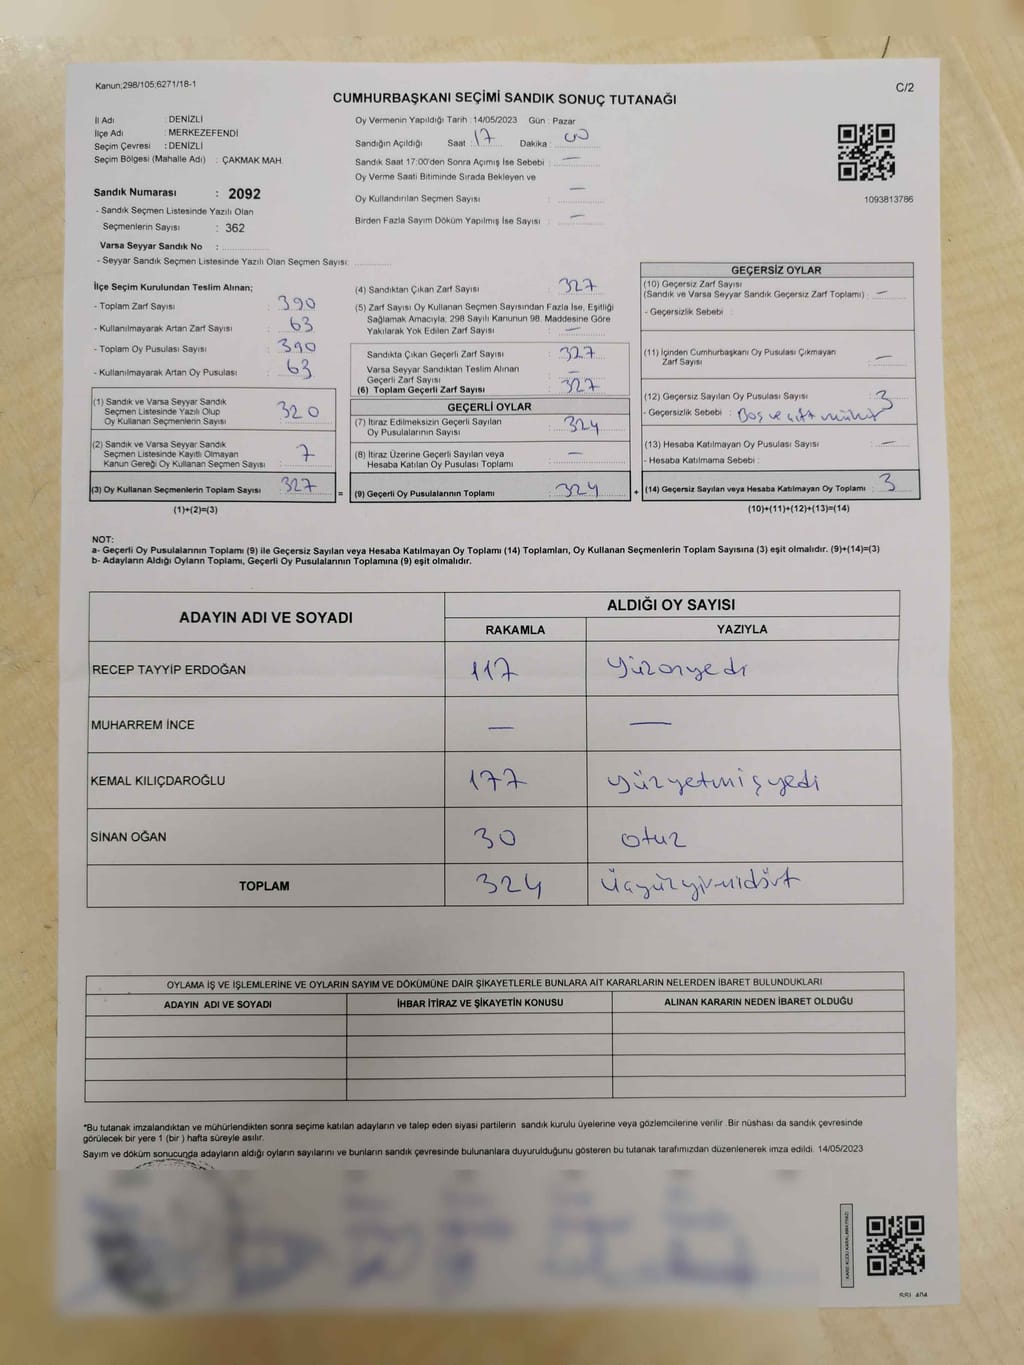 Kanun;298/105;6271/18-1
C/2
CUMHURBAŞKANI SEÇİMİ SANDIK SONUÇ TUTANAĞI
İl Adı : DENİZLİ
İlçe Adı : MERKEZEFENDİ
Seçim Çevresi : DENİZLİ
Seçim Bölgesi (Mahalle Adı) : ÇAKMAK MAH.
Sandık Numarası : 2092
- Sandık Seçmen Listesinde Yazılı Olan
Seçmenlerin Sayısı : 362
Varsa Seyyar Sandık No :
- Seyyar Sandık Seçmen Listesinde Yazılı Olan Seçmen Sayısı:
Oy Vermenin Yapıldığı Tarih : 14/05/2023 Gün : Pazar
Sandığın Açıldığı Saat : 17 Dakika : 00
Sandık Saat 17:00'den Sonra Açımış İse Sebebi : —
Oy Verme Saati Bitiminde Sırada Bekleyen ve
Oy Kullandırılan Seçmen Sayısı : —
Birden Fazla Sayım Döküm Yapılmış İse Sayısı : —
1093813786
İlçe Seçim Kurulundan Teslim Alınan;
- Toplam Zarf Sayısı : 390
- Kullanılmayarak Artan Zarf Sayısı : 63
- Toplam Oy Pusulası Sayısı : 390
- Kullanılmayarak Artan Oy Pusulası : 63
(1) Sandık ve Varsa Seyyar Sandık
Seçmen Listesinde Yazılı Olup
Oy Kullanan Seçmenlerin Sayısı : 320
(2) Sandık ve Varsa Seyyar Sandık
Seçmen Listesinde Kayıtlı Olmayan
Kanun Gereği Oy Kullanan Seçmen Sayısı : 7
(3) Oy Kullanan Seçmenlerin Toplam Sayısı : 327
(1)+(2)=(3)
(4) Sandıktan Çıkan Zarf Sayısı : 327
(5) Zarf Sayısı Oy Kullanan Seçmen Sayısından Fazla İse, Eşitliği
Sağlamak Amacıyla; 298 Sayılı Kanunun 98. Maddesine Göre
Yakılarak Yok Edilen Zarf Sayısı : —
Sandıkta Çıkan Geçerli Zarf Sayısı : 327
Varsa Seyyar Sandıktan Teslim Alınan
Geçerli Zarf Sayısı : —
(6) Toplam Geçerli Zarf Sayısı : 327
GEÇERLİ OYLAR
(7) İtiraz Edilmeksizin Geçerli Sayılan
Oy Pusulalarının Sayısı : 324
(8) İtiraz Üzerine Geçerli Sayılan veya
Hesaba Katılan Oy Pusulası Toplamı : —
= (9) Geçerli Oy Pusulalarının Toplamı : 324
GEÇERSİZ OYLAR
(10) Geçersiz Zarf Sayısı
(Sandık ve Varsa Seyyar Sandık Geçersiz Zarf Toplamı) : —
- Geçersizlik Sebebi :
(11) İçinden Cumhurbaşkanı Oy Pusulası Çıkmayan
Zarf Sayısı : —
(12) Geçersiz Sayılan Oy Pusulası Sayısı : 3
- Geçersizlik Sebebi : Boş ve çift mühür
(13) Hesaba Katılmayan Oy Pusulası Sayısı : —
- Hesaba Katılmama Sebebi :
+ (14) Geçersiz Sayılan veya Hesaba Katılmayan Oy Toplamı : 3
(10)+(11)+(12)+(13)=(14)
NOT:
a- Geçerli Oy Pusulalarının Toplamı (9) ile Geçersiz Sayılan veya Hesaba Katılmayan Oy Toplamı (14) Toplamları, Oy Kullanan Seçmenlerin Toplam Sayısına (3) eşit olmalıdır. (9)+(14)=(3)
b- Adayların Aldığı Oyların Toplamı, Geçerli Oy Pusulalarının Toplamına (9) eşit olmalıdır.
ADAYIN ADI VE SOYADI
ALDIĞI OY SAYISI
RAKAMLA YAZIYLA
RECEP TAYYİP ERDOĞAN 117 Yüzonyedi
MUHARREM İNCE — —
KEMAL KILIÇDAROĞLU 177 yüzyetmişyedi
SİNAN OĞAN 30 otuz
TOPLAM 324 Üçyüzyirmidört
OYLAMA İŞ VE İŞLEMLERİNE VE OYLARIN SAYIM VE DÖKÜMÜNE DAİR ŞİKAYETLERLE BUNLARA AİT KARARLARIN NELERDEN İBARET BULUNDUKLARI
ADAYIN ADI VE SOYADI İHBAR İTİRAZ VE ŞİKAYETİN KONUSU ALINAN KARARIN NEDEN İBARET OLDUĞU
*Bu tutanak imzalandıktan ve mühürlendikten sonra seçime katılan adayların ve talep eden siyasi partilerin sandık kurulu üyelerine veya gözlemcilerine verilir .Bir nüshası da sandık çevresinde
görülecek bir yere 1 (bir ) hafta süreyle asılır.
Sayım ve döküm sonucunda adayların aldığı oyların sayılarını ve bunların sandık çevresinde bulunanlara duyurulduğunu gösteren bu tutanak tarafımızdan düzenlenerek imza edildi. 14/05/2023